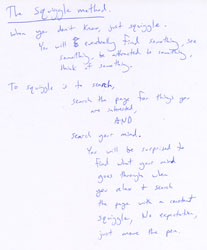 The Squiggle method.
When you don't know, just squiggle.
You will eventually find something, see
something, be attracted to something,
think of something.
To squiggle is to search,
search the page for things you
are interested,
AND
search your mind.
You will be surprised to
find what your mind
goes through when
you allow it search
the page with a constant
squiggle, No expectation,
just move the pen.